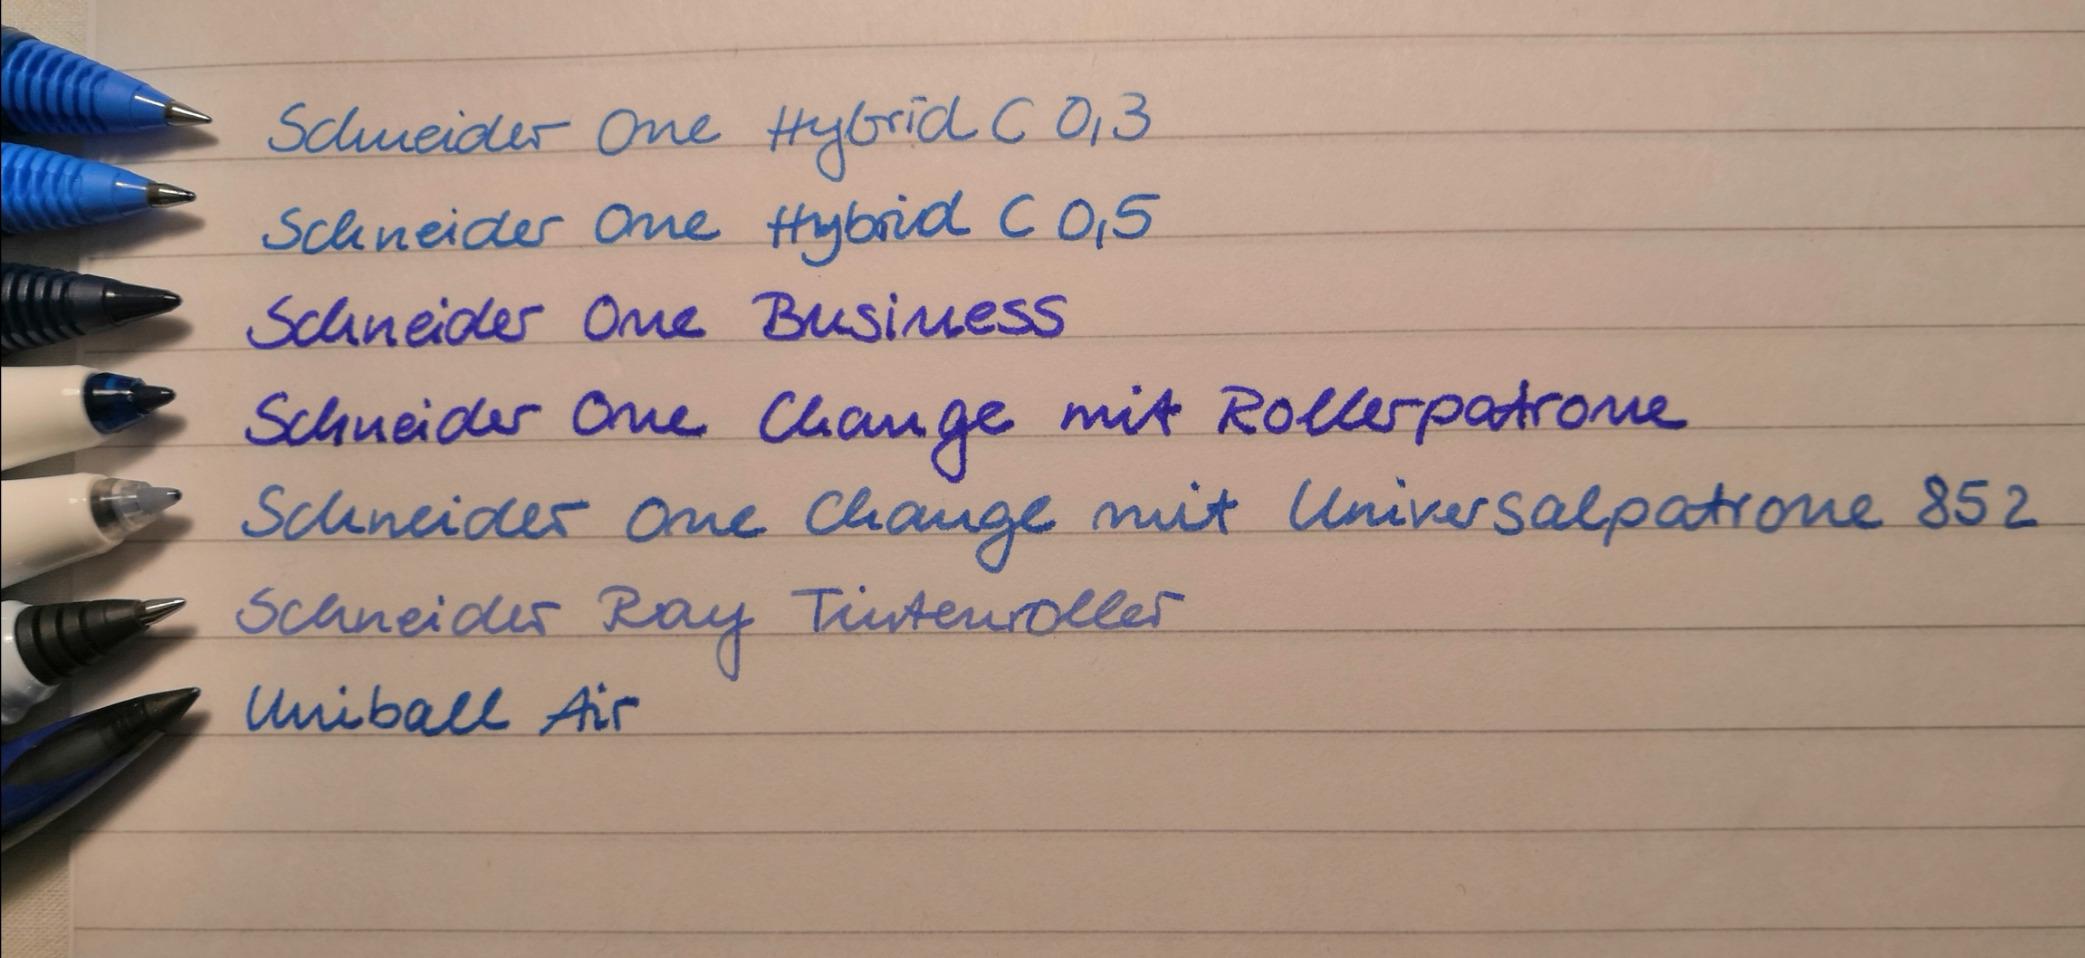 Schneider One Hybrid C 0,3
Schneider One Hybrid C 0,5
Schneider One Business
Schneider One Change mit Rollerpatrone
Schneider One Change mit Universalpatrone 852
Schneider Ray Tintenroller
Uniball Air